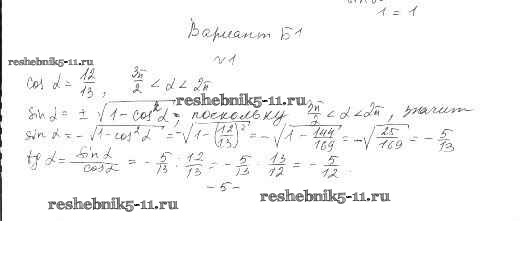 1 = 1
Вариант Б1
reshebnik5-11.ru
√1
cos α = 12/13, 3π/2 < α < 2π
sin α = ± √(1 - cos²α), поскольку 3π/2 < α < 2π, значит
sin α = -√(1 - cos²α) = -√(1 - (12/13)²) = -√(1 - 144/169) = -√(25/169) = -5/13
tg α = sin α / cos α = -5/13 : 12/13 = -5/13 · 13/12 = -5/12.
-5-
reshebnik5-11.ru reshebnik5-11.ru